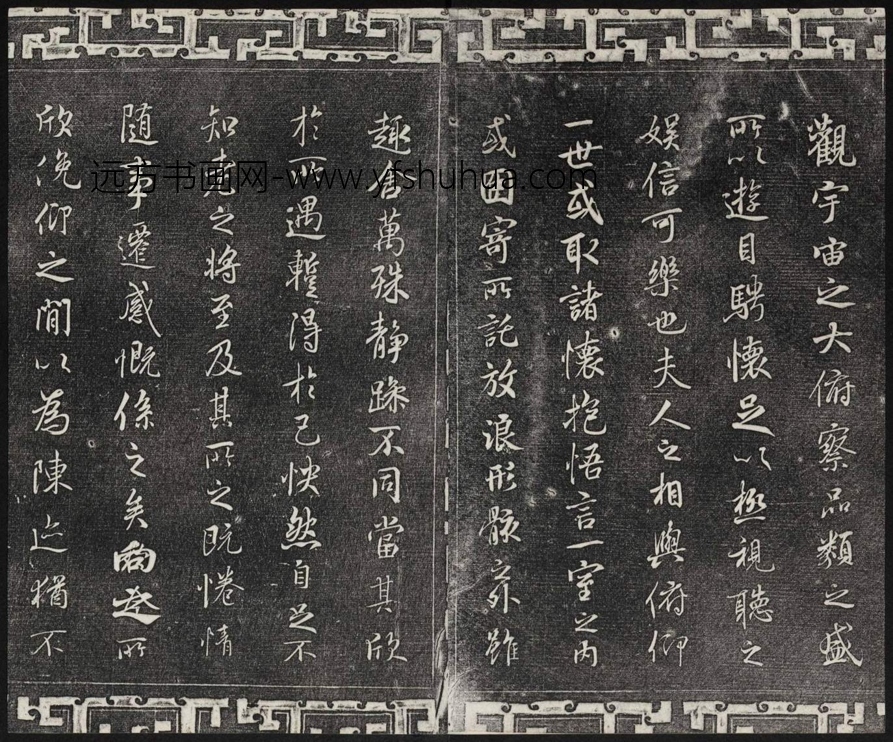 觀宇宙之大俯察品類之盛
所以遊目騁懷足以極視聽之
娛信可樂也夫人之相與俯仰
一世或取諸懷抱悟言一室之內
或因寄所託放浪形骸之外雖
趣舍萬殊靜躁不同當其欣
於所遇蹔得於己怏然自足不
知老之將至及其所之既惓情
隨事遷感慨係之矣向之所
欣俛仰之閒以為陳迹猶不
远方书画网-www.yfshuhua.com